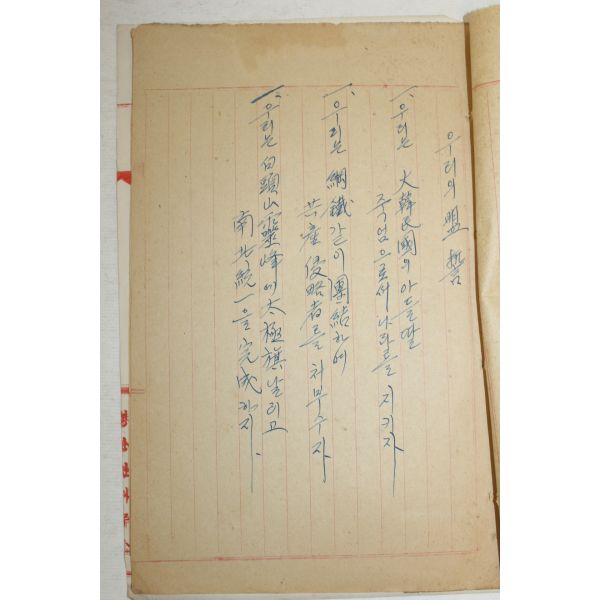 우리의 盟誓
一、우리는 大韓民國의 아들딸
죽엄으로써 나라를 지키자
一、우리는 綱鐵같이 團結하여
共産侵略者를 처부수자
一、우리는 白頭山靈峰에 太極旗날리고
南北統一을 完成하자.